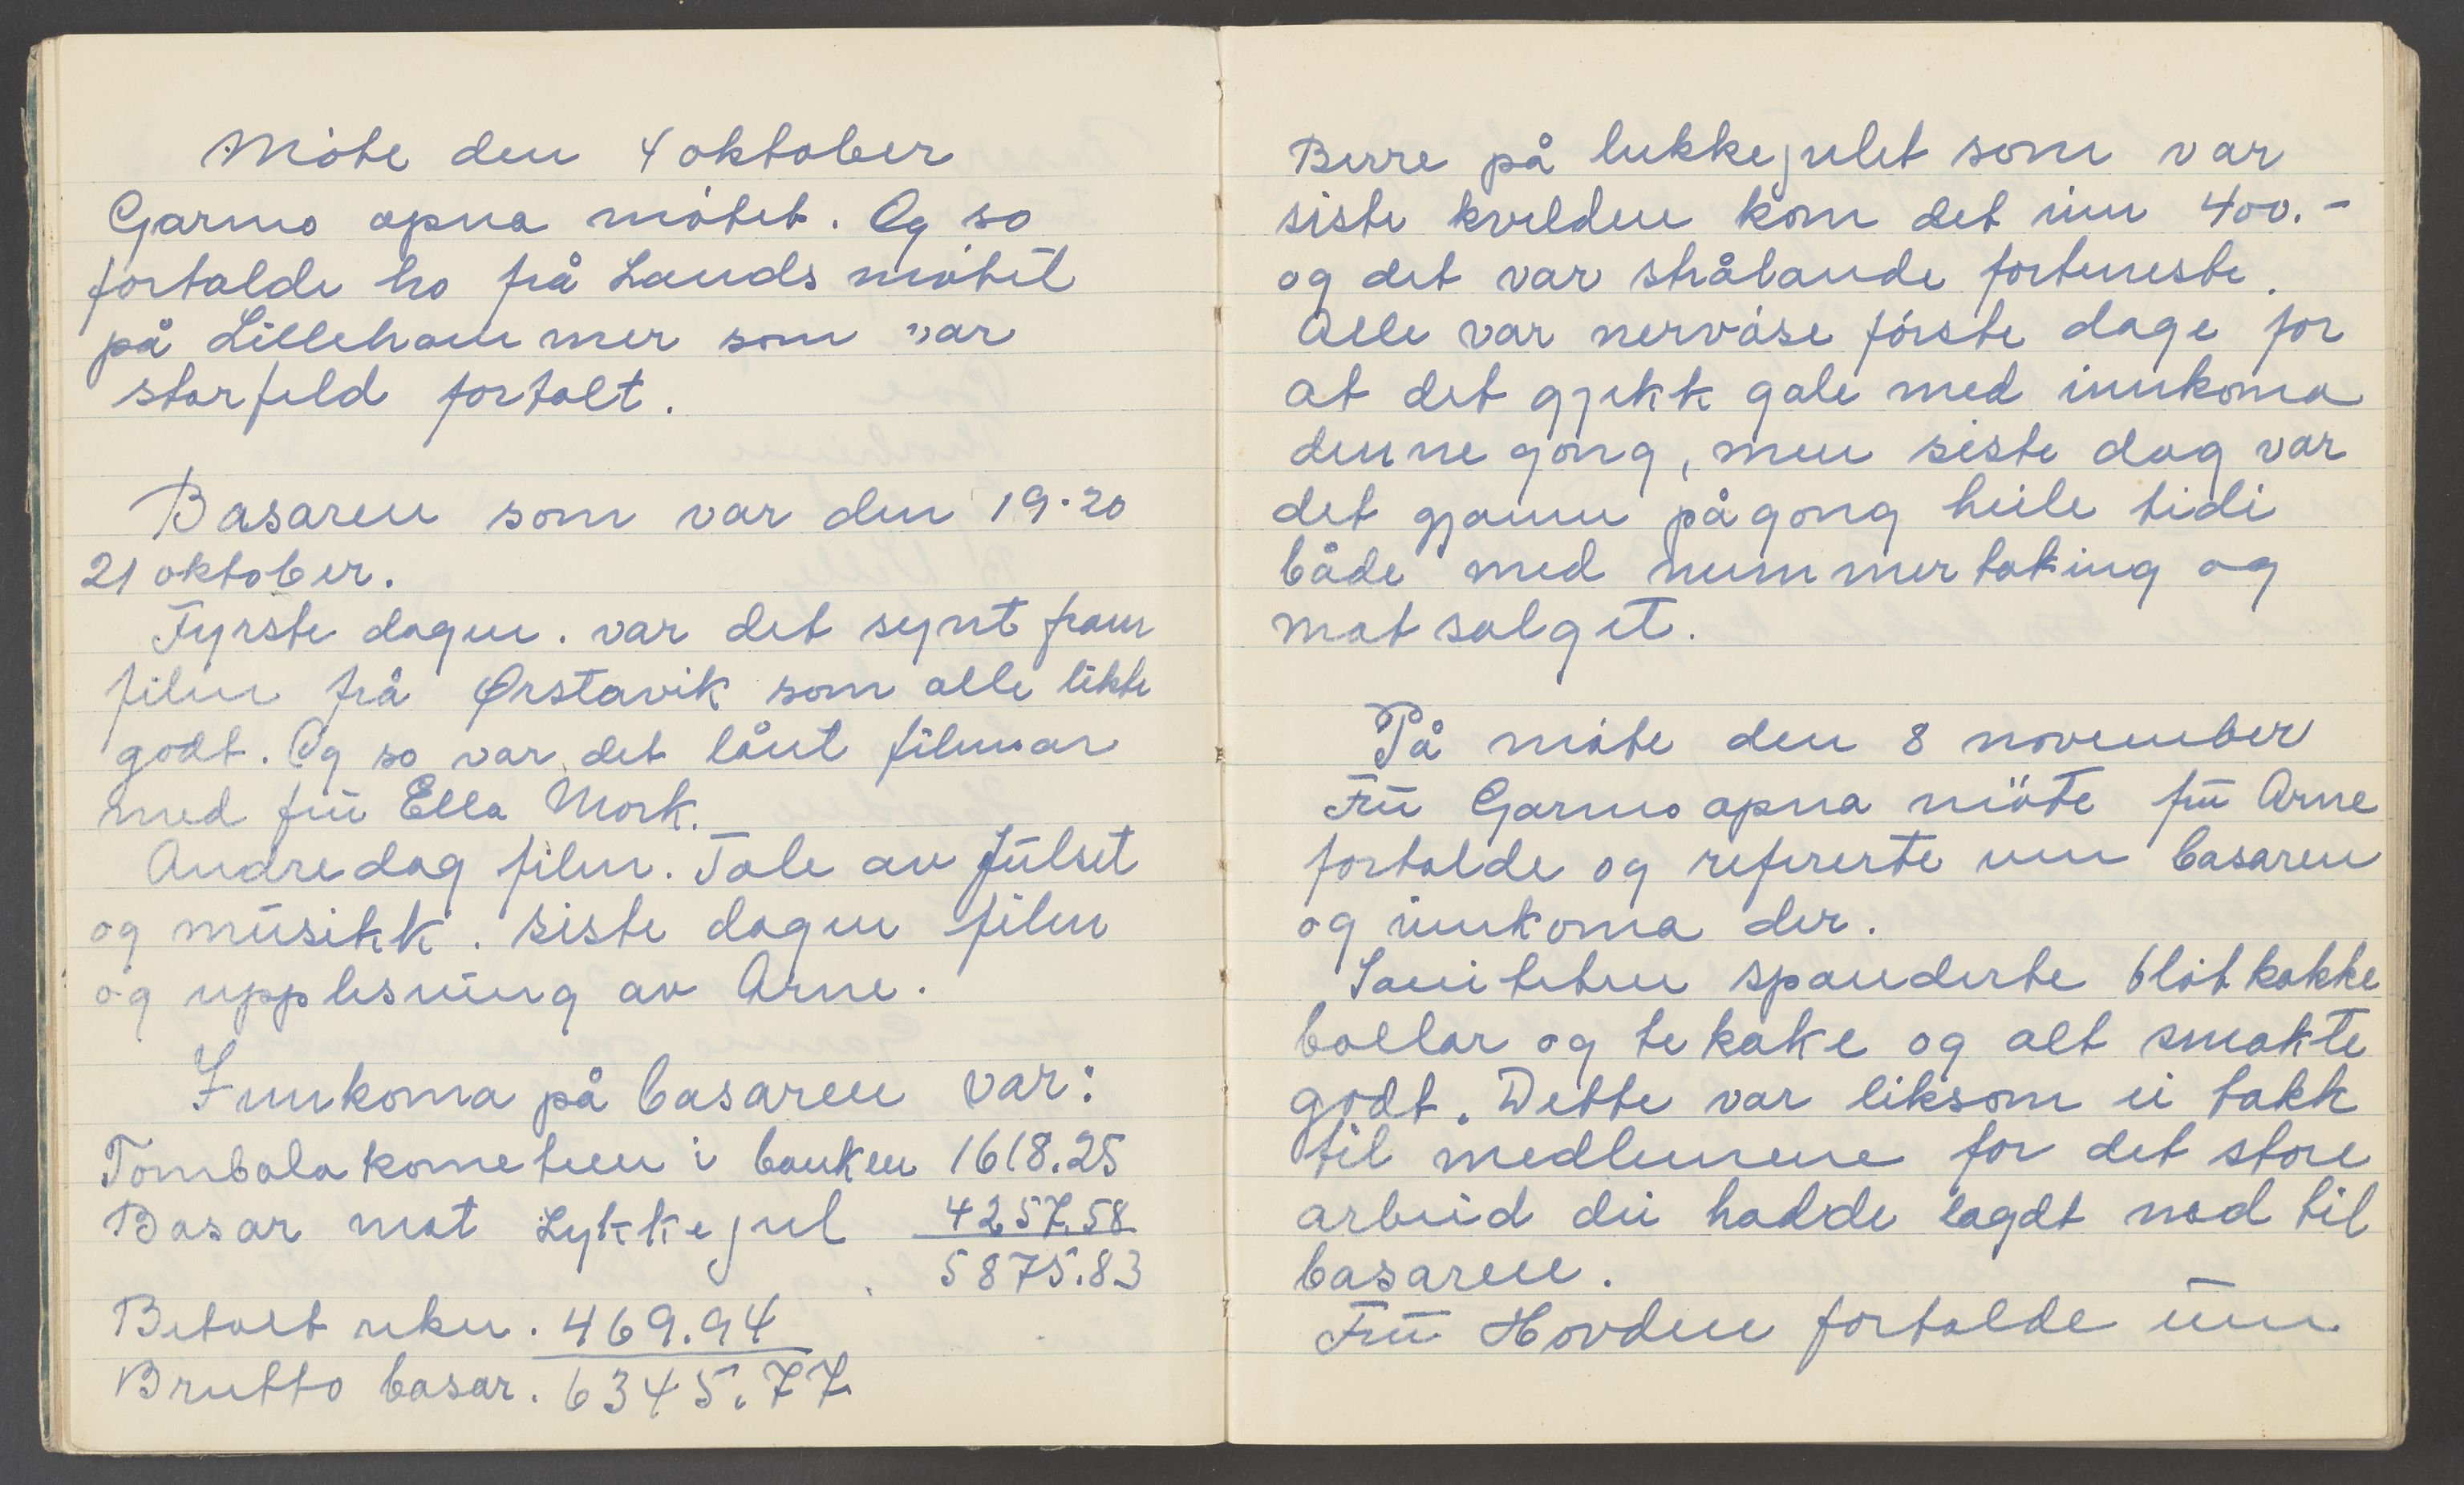 Møte den 4 oktober
Garmo opna møtet. Og so
fortalde ho frå Landsmøtet
på Lillehammer som var
storfeld fortalt.
Basaren som var den 19.20
21 oktober.
Fyrste dagen. var det synt fram
film frå Ørstavik som alle likte
godt. Og so var det lånt filmar
med frú Ella Mork.
Andre dag film. Tale av Julset
og musikk. siste dagen film
og upplesning av Arne.
Innkoma på basaren var:
Tombola kometeen i banken 1618.25
Basar mat Lykkejul 4257.58
5875.83
Betalt rekn. 469.94
Brutto basar. 6345.77
Berre på lukkejulet som var
siste kvelden kom det inn 400.-
og det var strålande forteneste.
Alle var nervøse første dage for
at det gjekk gale med innkoma
denne gong, men siste dag var
det gjamn pågong heile tidi
både med nummertaking og
mat salget.
På møte den 8 november
Frú Garmo opna møte frú Arne
fortalde og refererte um basaren
og innkoma der.
Saniteten spanderte bløtkakke
bollar og te kake og alt smakte
godt. Dette var liksom ei takk
til medlemene for det store
arbeid dei hadde lagdt ned til
basaren.
Frú Hovden fortalde um